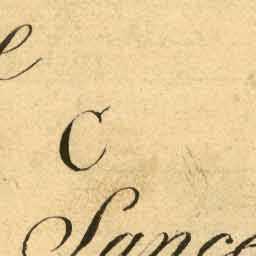 e
C
Lance